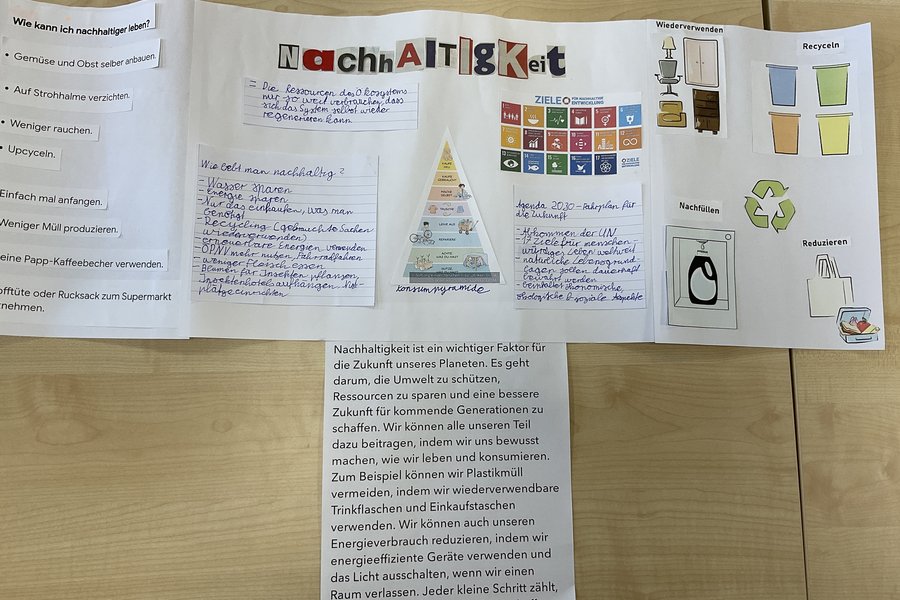 Wie kann ich nachhaltiger leben?
• Gemüse und Obst selber anbauen.
• Auf Strohhalme verzichten.
• Weniger rauchen.
• Upcyceln.
Einfach mal anfangen.
Weniger Müll produzieren.
eine Papp-Kaffeebecher verwenden.
offtüte oder Rucksack zum Supermarkt
nehmen.
NachhALTIgKeit
= Die Ressourcen des Ökosystems
nur so weit verbrauchen, dass
sich das System selbst wieder
regenerieren kann
Wie lebt man nachhaltig?
- Wasser sparen
- Energie sparen
- Nur das einkaufen, was man
benötigt
- Recycling (gebrauchte Sachen
wiederverwenden)
- erneuerbare Energien verwenden
- ÖPNV mehr nutzen, Fahrradfahren
- weniger Fleisch essen
- Blumen für Insekten pflanzen,
Insektenhotels aufhängen, Nist-
plätze einrichten
KAUFE
NEU
KAUFE
GEBRAUCHT
MACHE
SELBST
TAUSCHE
LEIHE AUS
REPARIERE
NUTZE
WAS DU HAST
Konsumpyramide
ZIELE FÜR NACHHALTIGE
ENTWICKLUNG
Agenda 2030 – Fahrplan für
die Zukunft
- Abkommen der UN
- 17 Ziele für menschen-
würdiges Leben weltweit
- natürliche Lebensgrund-
lagen sollen dauerhaft
bewahrt werden
- beinhaltet ökonomische,
ökologische & soziale Aspekte
Wiederverwenden
Recyceln
Nachfüllen
Reduzieren
Nachhaltigkeit ist ein wichtiger Faktor für
die Zukunft unseres Planeten. Es geht
darum, die Umwelt zu schützen,
Ressourcen zu sparen und eine bessere
Zukunft für kommende Generationen zu
schaffen. Wir können alle unseren Teil
dazu beitragen, indem wir uns bewusst
machen, wie wir leben und konsumieren.
Zum Beispiel können wir Plastikmüll
vermeiden, indem wir wiederverwendbare
Trinkflaschen und Einkaufstaschen
verwenden. Wir können auch unseren
Energieverbrauch reduzieren, indem wir
energieeffiziente Geräte verwenden und
das Licht ausschalten, wenn wir einen
Raum verlassen. Jeder kleine Schritt zählt,